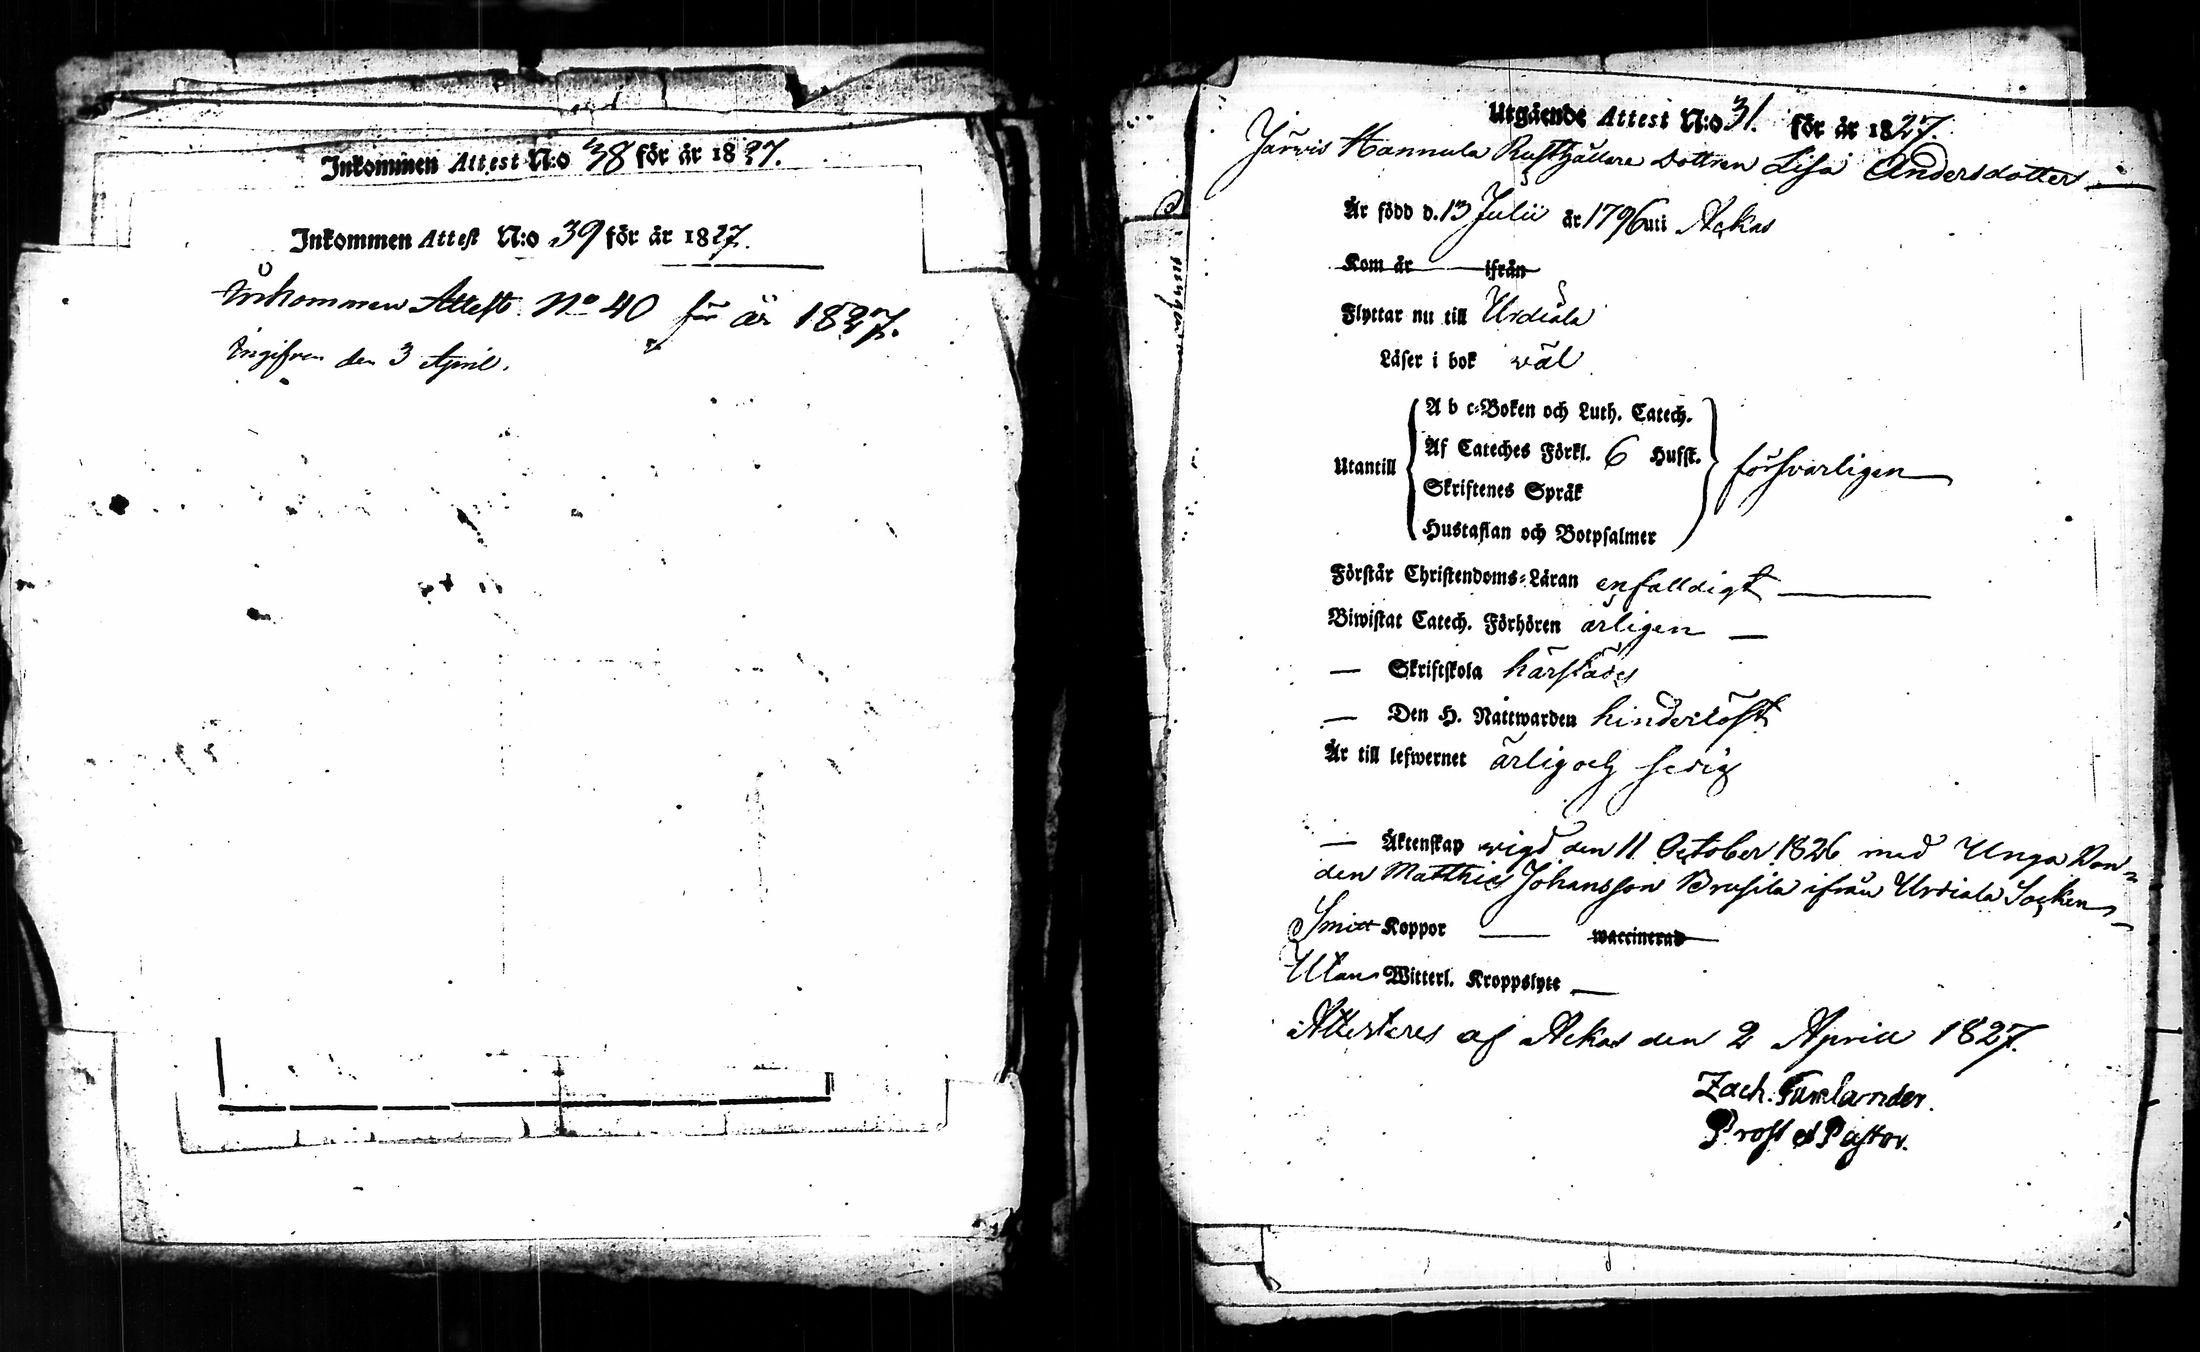 Inkommen Attest N:o 38 för år 1827.
Inkommen Attest N:o 39 för år 1827.
Inkommen Attest No 40 för år 1827.
Ingifven den 3 April.
Utgående Attest N:o 31. för år 1827.
Järvis Hannula Rusthållare Dottren Lisa Andersdotter
Är född d. 13 Julii år 1796 uti Ackas
Kom år ifrån
Flyttar nu till Urdiala
Läser i bok wäl
A b c-Boken och Luth. Catech.
Af Cateches Förkl. 6 Hufst.
Utantill försvarligen
Skriftenes Språk
Hustaflan och Botpsalmer
Förstår Christendoms-Läran enfalldigt
Biwistat Catech. Förhören årligen
— Skriftskola härstädes
— Den H. Nattwarden hinderlöst
Är till lefwernet ärlig och sedig
— Äktenskap wigd den 11 October 1826 med Unga Bon-
den Matthies Johansson Brusila ifrån Urdiala Socken
Smitt Koppor — waccinerad
Utan Witterl. Kroppslyte
Attesteres af Ackas den 2 Aprill 1827.
Zach.
Prost et Pastor.